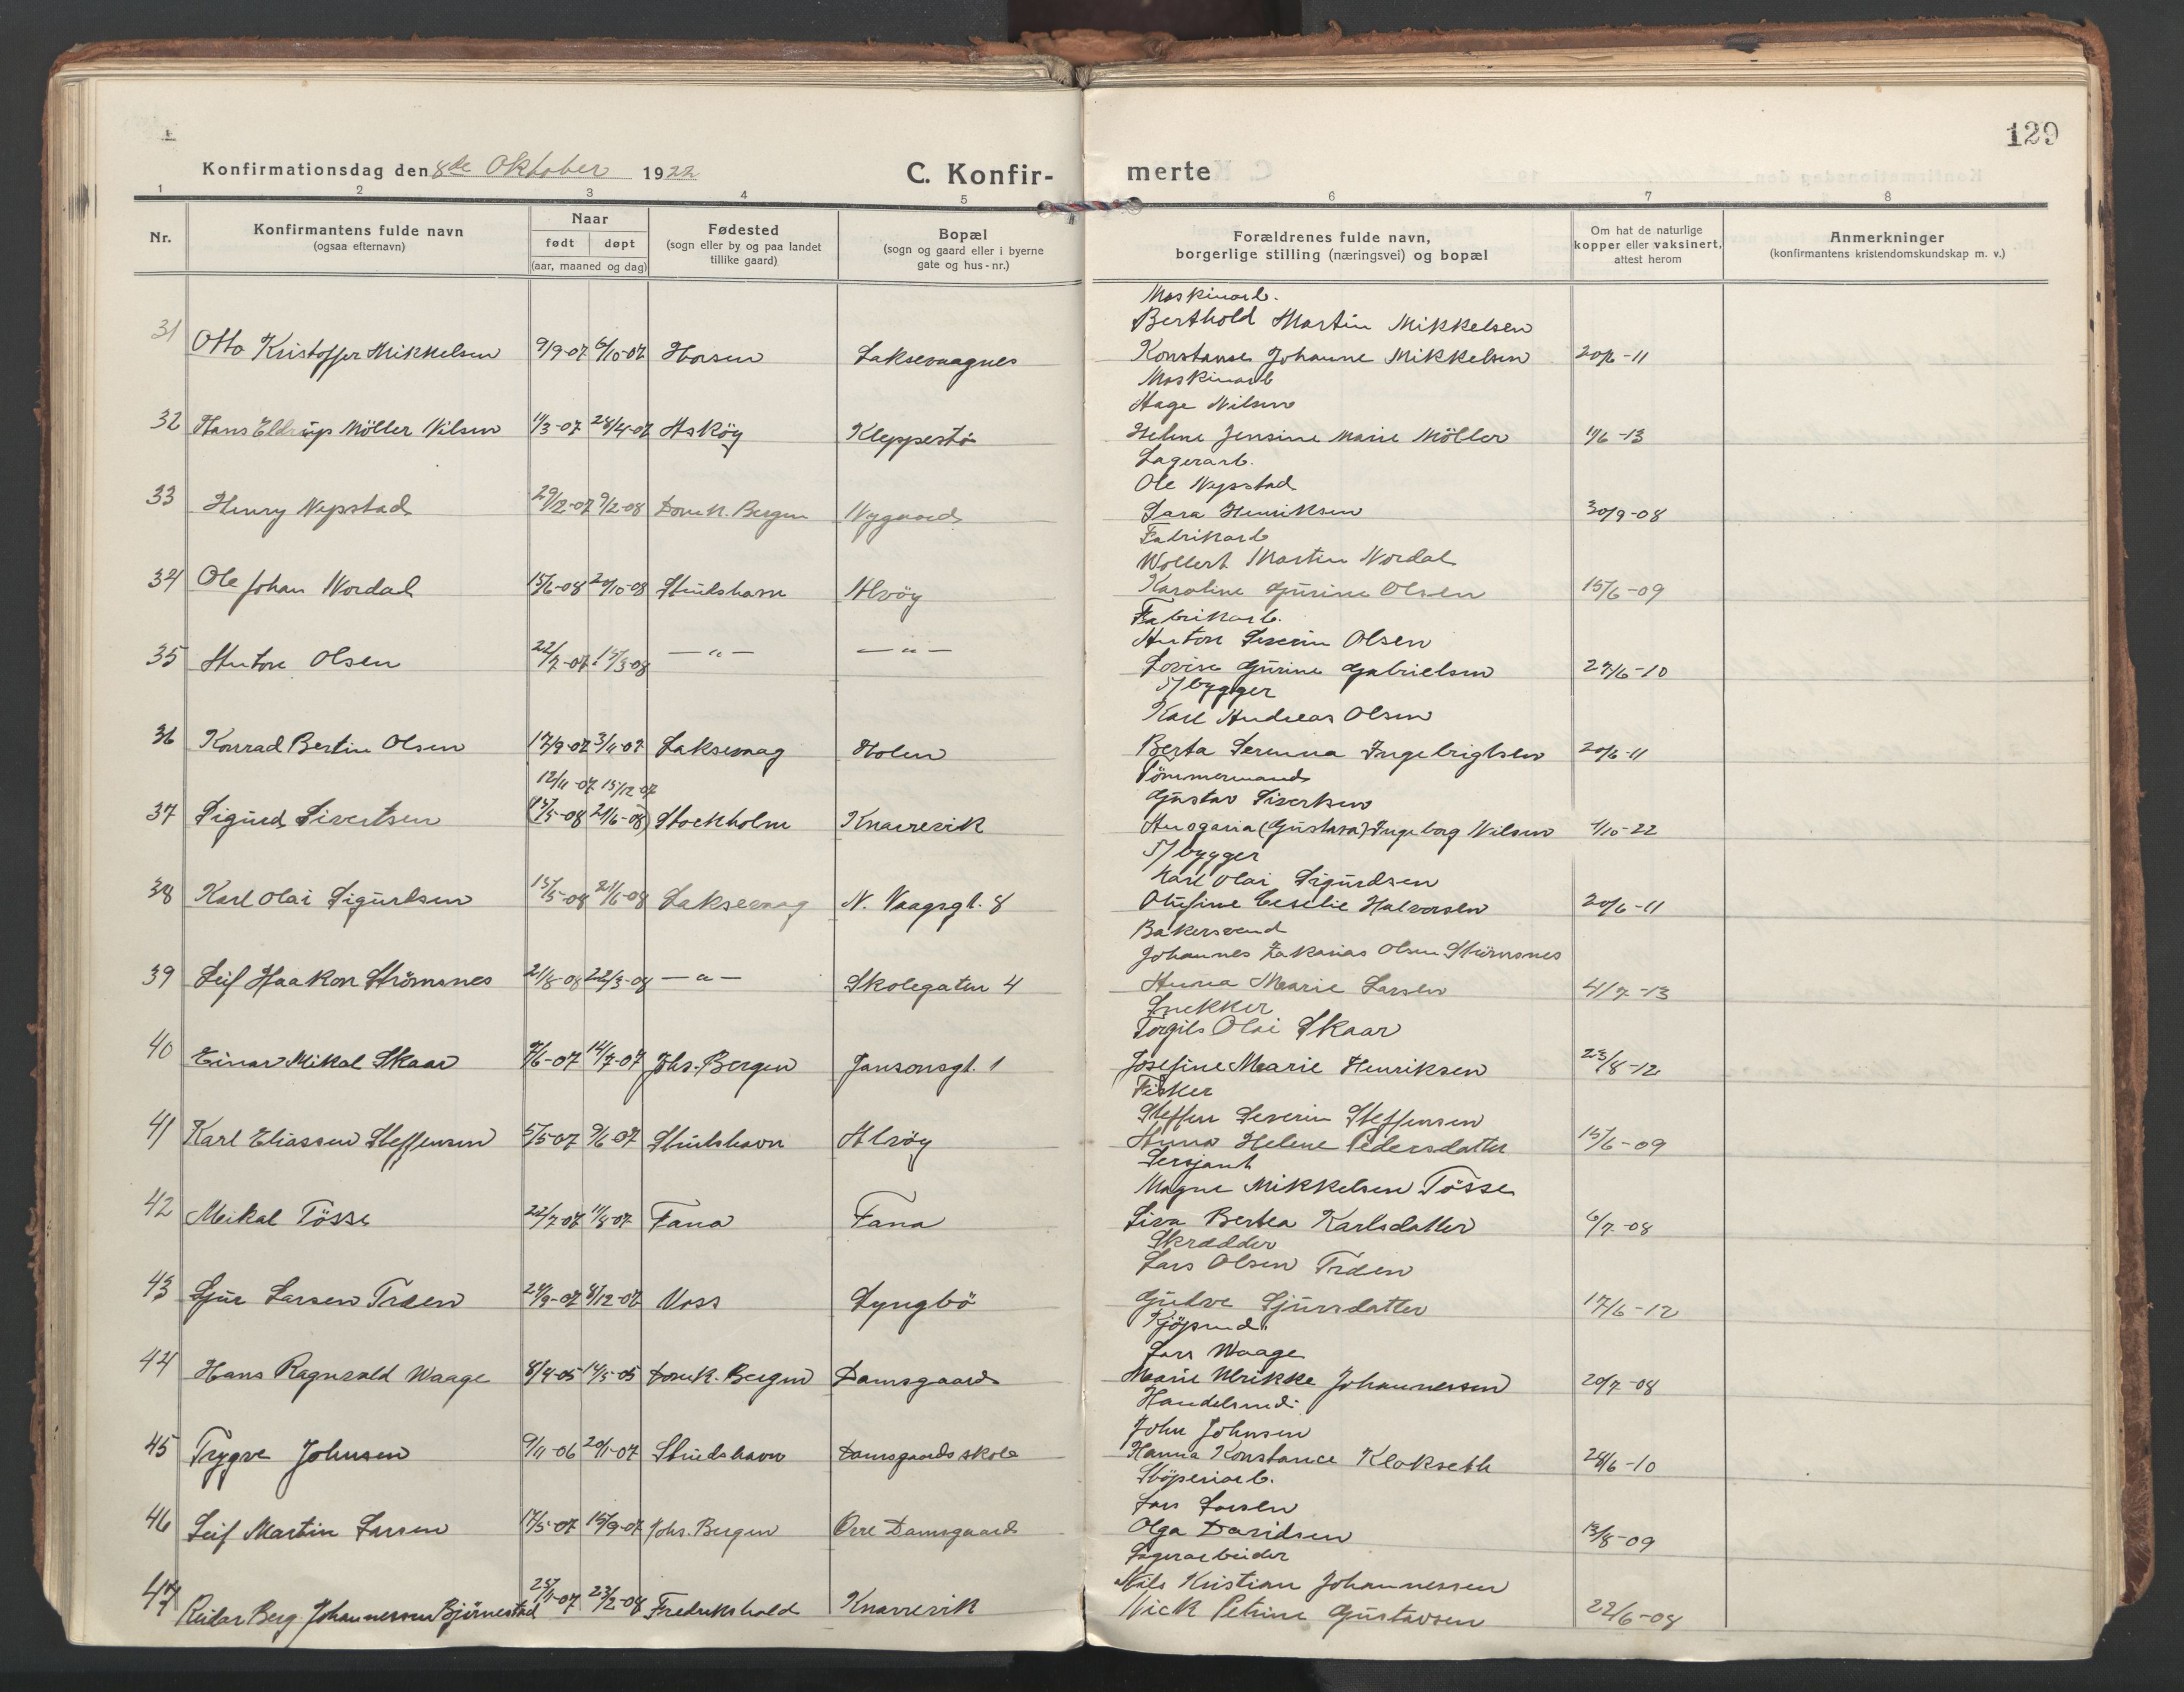 129
Konfirmationsdag den 8de Oktober 1922
C. Konfir-
merte
1 2 3 4 5 6 7 8
Nr.
Konfirmantens fulde navn
(ogsaa efternavn)
Naar
født døpt
(aar, maaned og dag)
Fødested
(sogn eller by og paa landet
tillike gaard)
Bopæl
(sogn og gaard eller i byerne
gate og hus-nr.)
Forældrenes fulde navn,
borgerlige stilling (næringsvei) og bopæl
Om hat de naturlige
kopper eller vaksinert,
attest herom
Anmerkninger
(konfirmantens kristendomskundskap m. v.)
Maskinarb.
Berthold Martin Mikkelsen
31 Otto Kristoffer Mikkelsen 9/9-07 6/10-07 Laksevaagnes Konstanse Johanne Mikkelsen 20/6-11
Maskinarb
Aage Nilsen
32 Hans Eldrup Möller Nilsen 11/3-07 28/4-07 Askøy Kleppestø Helene Jensine Marie Möller 11/6-13
Lagerarb.
Ole Nypstad
33 Henry Nypstad 29/12-07 9/2-08 Domk. Bergen Nygaard Sara Henriksen 30/9-08
Fabrikarb
Wollert Martin Nordal
34 Ole Johan Nordal 15/6-08 20/10-08 Struxhavn Alvøy Karoline Gurine Olsen 15/6-09
Fabrikarb.
Anton Severin Olsen
35 Anton Olsen 22/7-07 15/3-08 —"— —"— Lovise Gurine Gabrielsen 27/6-10
S/bygger
Karl Andreas Olsen
36 Konrad Bertin Olsen 17/9-07 3/11-07 Laksevaag Holen Berta Serina Ingebrigtsen 20/6-11
Tömmermand
12/11-07 15/12-07
Gustav Sivertsen
37 Sigurd Sivertsen (15/5-08 21/6-08) Stockholm Knarrevik Ansgaria (Gustava) Ingeborg Nilsen 4/10-22
S/bygger
Karl Olai Sigurdsen
38 Karl Olai Sigurdsen 15/5-08 21/6-08 Laksevaag N. Vaagsgt. 8 Olufine Cecelie Halvorsen 20/6-11
Bakersvend
Johannes Zakarias Olsen Strömsnes
39 Leif Haakon Strömsnes 21/8-08 22/3-08 —"— Skolegaten 4 Anna Marie Larsen 4/7-13
Snekker
Torgils Olai Skaar
40 Einar Mikal Skaar 7/6-07 14/7-07 Johs. Bergen Jansonsgt. 1 Josefine Marie Henriksen 23/8-12
Fisker
Steffen Severin Steffensen
41 Karl Eliassen Steffensen 5/5-07 9/6-07 Struxhavn Alvøy Anna Helene Pedersdatter 15/6-09
Sersjant
Magne Mikkelsen Tösse
42 Mikal Tösse 22/7-07 11/8-07 Fana Fana Lisa Bertea Karlsdatter 6/7-08
Skrædder
Lars Olsen Træen
43 Sjur Larsen Træen 24/9-07 8/12-07 Voss Lyngbö Gudve Sjursdatter 17/6-12
Kjöpmd.
Lars Waage
44 Hans Ragnvald Waage 8/4-05 14/5-05 Domk. Bergen Damsgaard Marie Ulrikke Johannessen 20/7-08
Handelsmd.
John Johnsen
45 Trygve Johnsen 9/11-06 20/1-07 Damsgaards skole Hanna Konstance Klokseth 28/6-10
Stöperiarb.
Lars Larsen
46 Leif Martin Larsen 17/5-07 15/9-07 Johs. Bergen Övre Damsgaard Olga Davidsen 13/8-09
Lagerarbeider
Nils Kristian Johannessen
47 Reidar Berg Johannessen Björnestad 25/11-07 23/2-08 Fredrikshald Knarrevik Nick Petrine Gustavsen 22/6-08